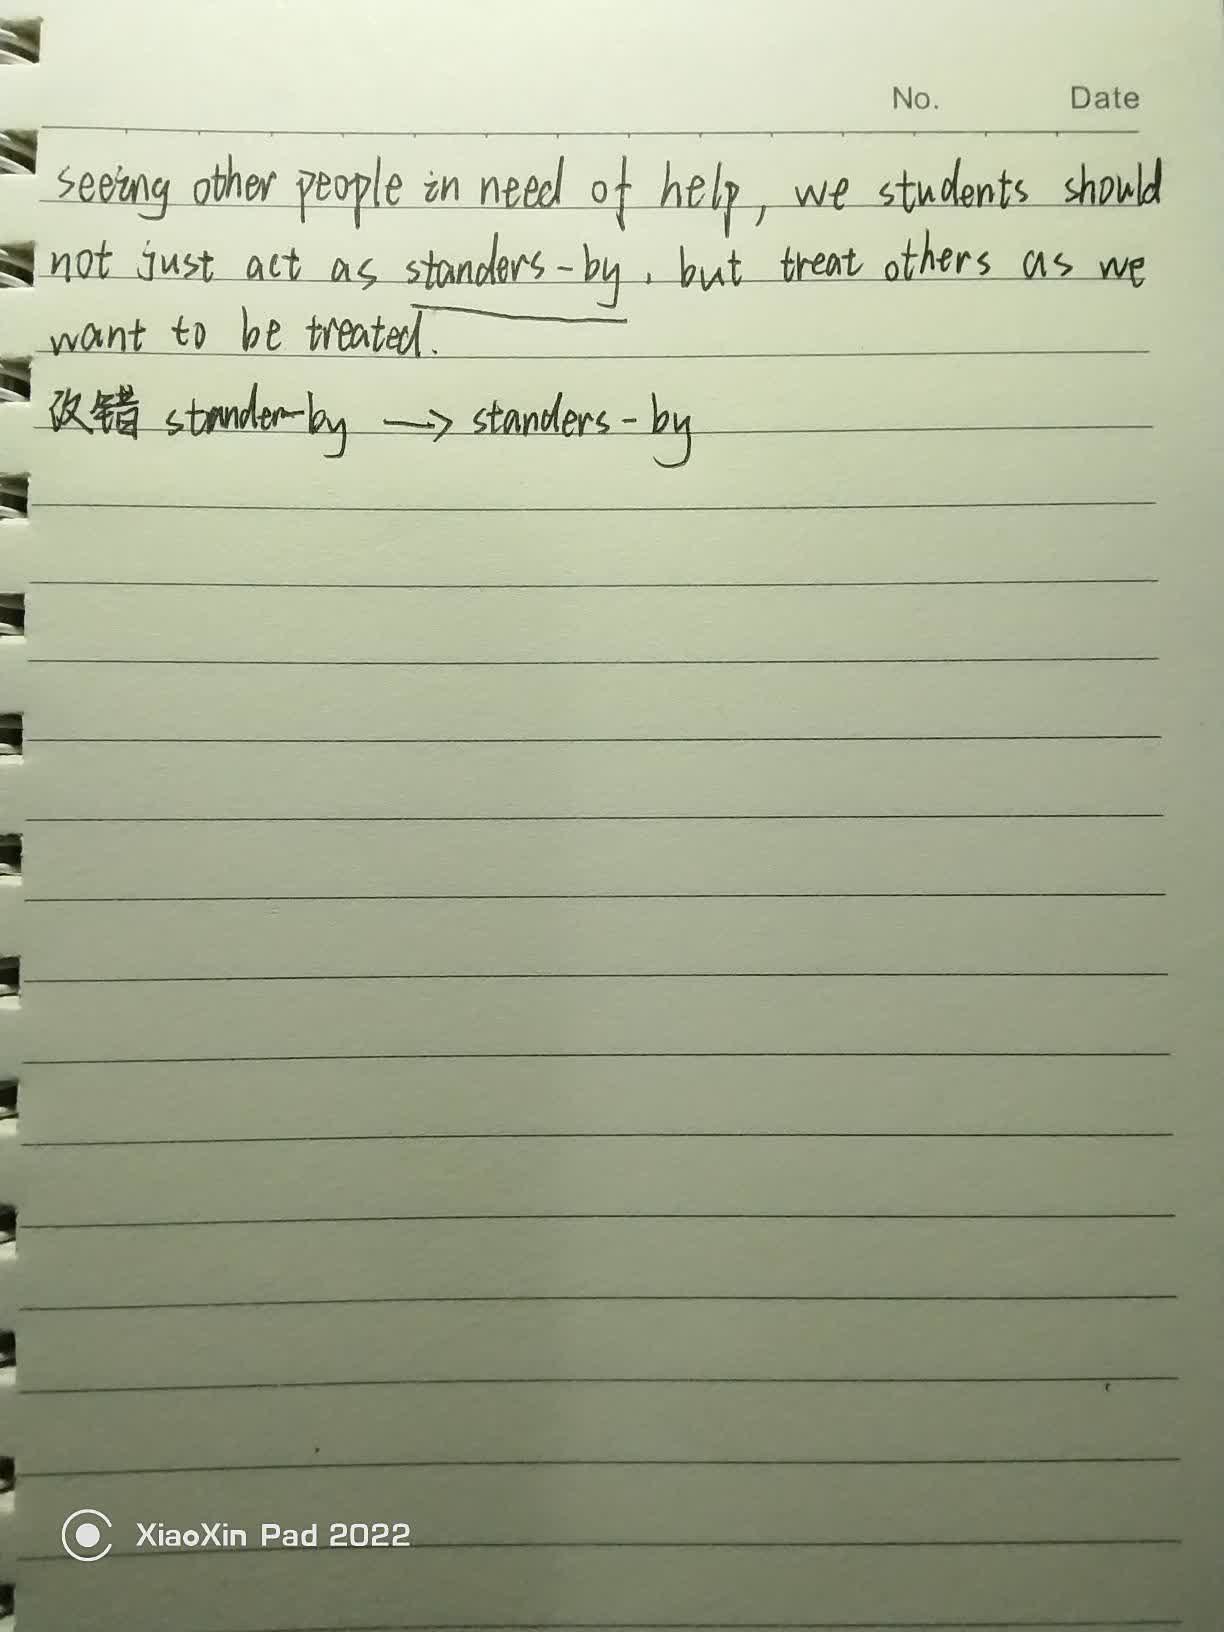 No. Date
seeing other people in need of help, we students should
not just act as standers-by, but treat others as we
want to be treated.
改错 stander-by → standers-by
XiaoXin Pad 2022